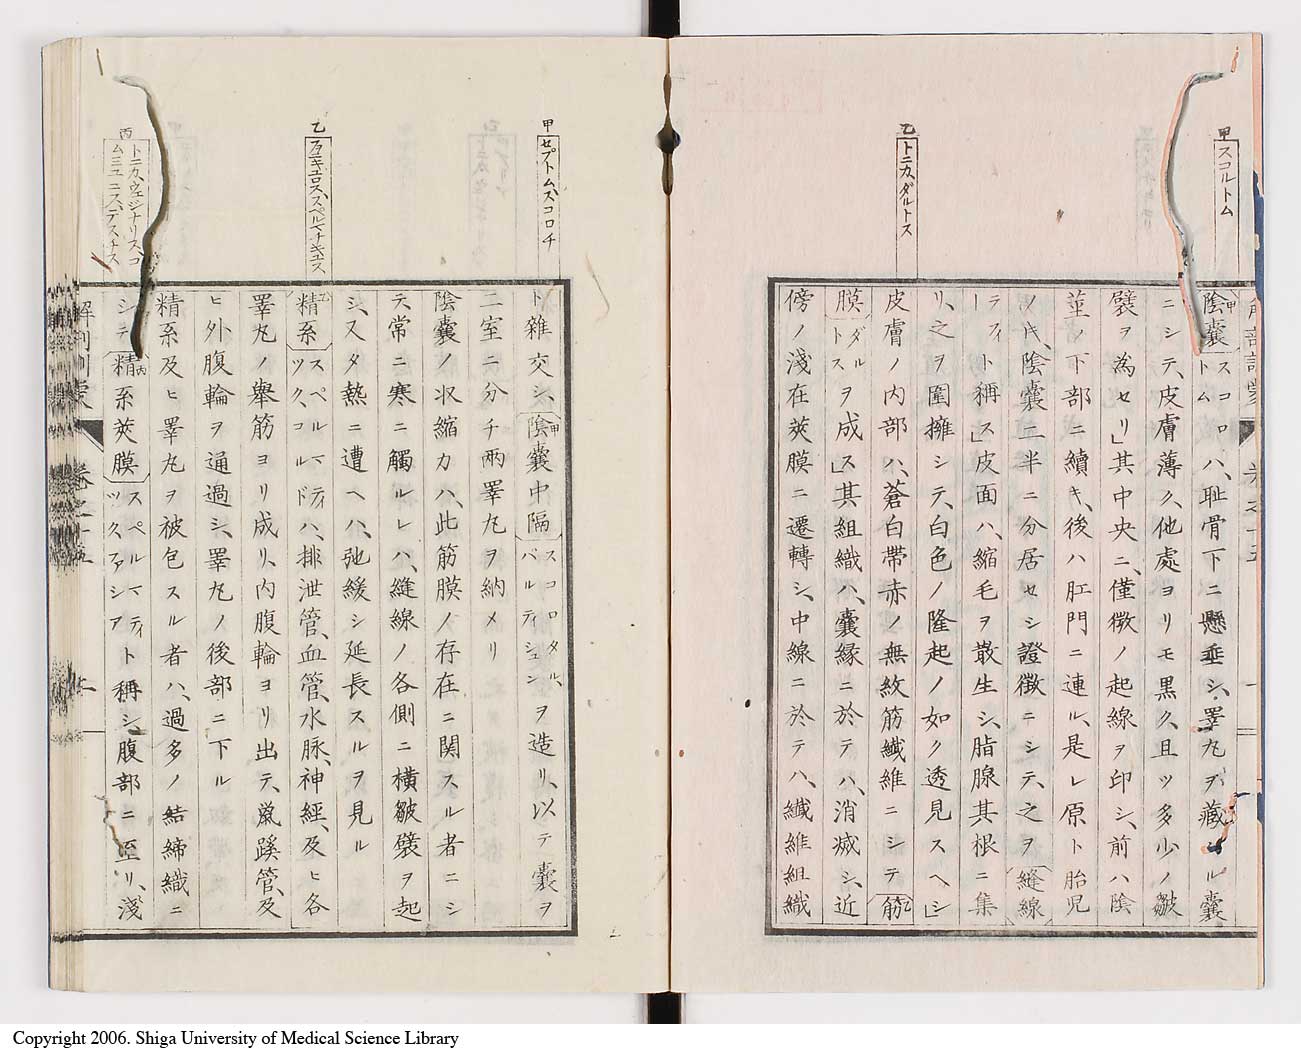 甲 スコルトム
乙 トニカ、ダルトス
陰嚢 スコロトム ハ、耻骨下ニ懸垂シ、睪丸ヲ藏ル嚢
ニシテ、皮膚薄ク、他處ヨリモ黒ク、且ツ多少ノ皺
襞ヲ為セリ」其中央ニ、僅微ノ起線ヲ印シ、前ハ陰
莖ノ下部ニ續キ、後ハ肛門ニ連ル、是レ原ト胎児
ノ時、陰嚢二半ニ分居セシ證徴ニシテ、之ヲ縫線
ラフィー ト稱ス」皮面ハ、縮毛ヲ散生シ、脂腺其根ニ集
リ、之ヲ圍擁シテ、白色ノ隆起ノ如ク透見スヘシ」
皮膚ノ内部ハ、蒼白帶赤ノ無紋筋纎維ニシテ筋
膜 ダルトス ヲ成ス」其組織ハ、嚢縁ニ於テハ、消滅シ、近
傍ノ淺在莢膜ニ遷轉シ、中線ニ於テハ、纎維組織
甲 セプトム、スコロチ
乙 フニキュロス、スペルマチキュス
丙 トニカ、ヴェジナリス、コムミュニス、テスチス
ト雜交シ、陰嚢中隔 スコロタル、パルティシュン ヲ造リ、以テ嚢ヲ
二室ニ分チ両睪丸ヲ納メリ
陰嚢ノ収縮力ハ、此筋膜ノ存在ニ関スル者ニシ
テ、常ニ寒ニ觸ルレハ、縫線ノ各側ニ横皺襞ヲ起
シ、又タ熱ニ遭ヘハ、弛緩シ延長スルヲ見ル
精系 スペルマティック、コルド ハ、排泄管、血管、水脉、神経、及ヒ各
睪丸ノ擧筋ヨリ成リ、内腹輪ヨリ出テ、鼠蹊管、及
ヒ外腹輪ヲ通過シ、睪丸ノ後部ニ下ル
精系及ヒ睪丸ヲ被包スル者ハ、過多ノ結締織ニ
シテ精系莢膜 スペルマティック、ファシア ト稱シ、腹部ニ至リ、淺
Copyright 2006. Shiga University of Medical Science Library